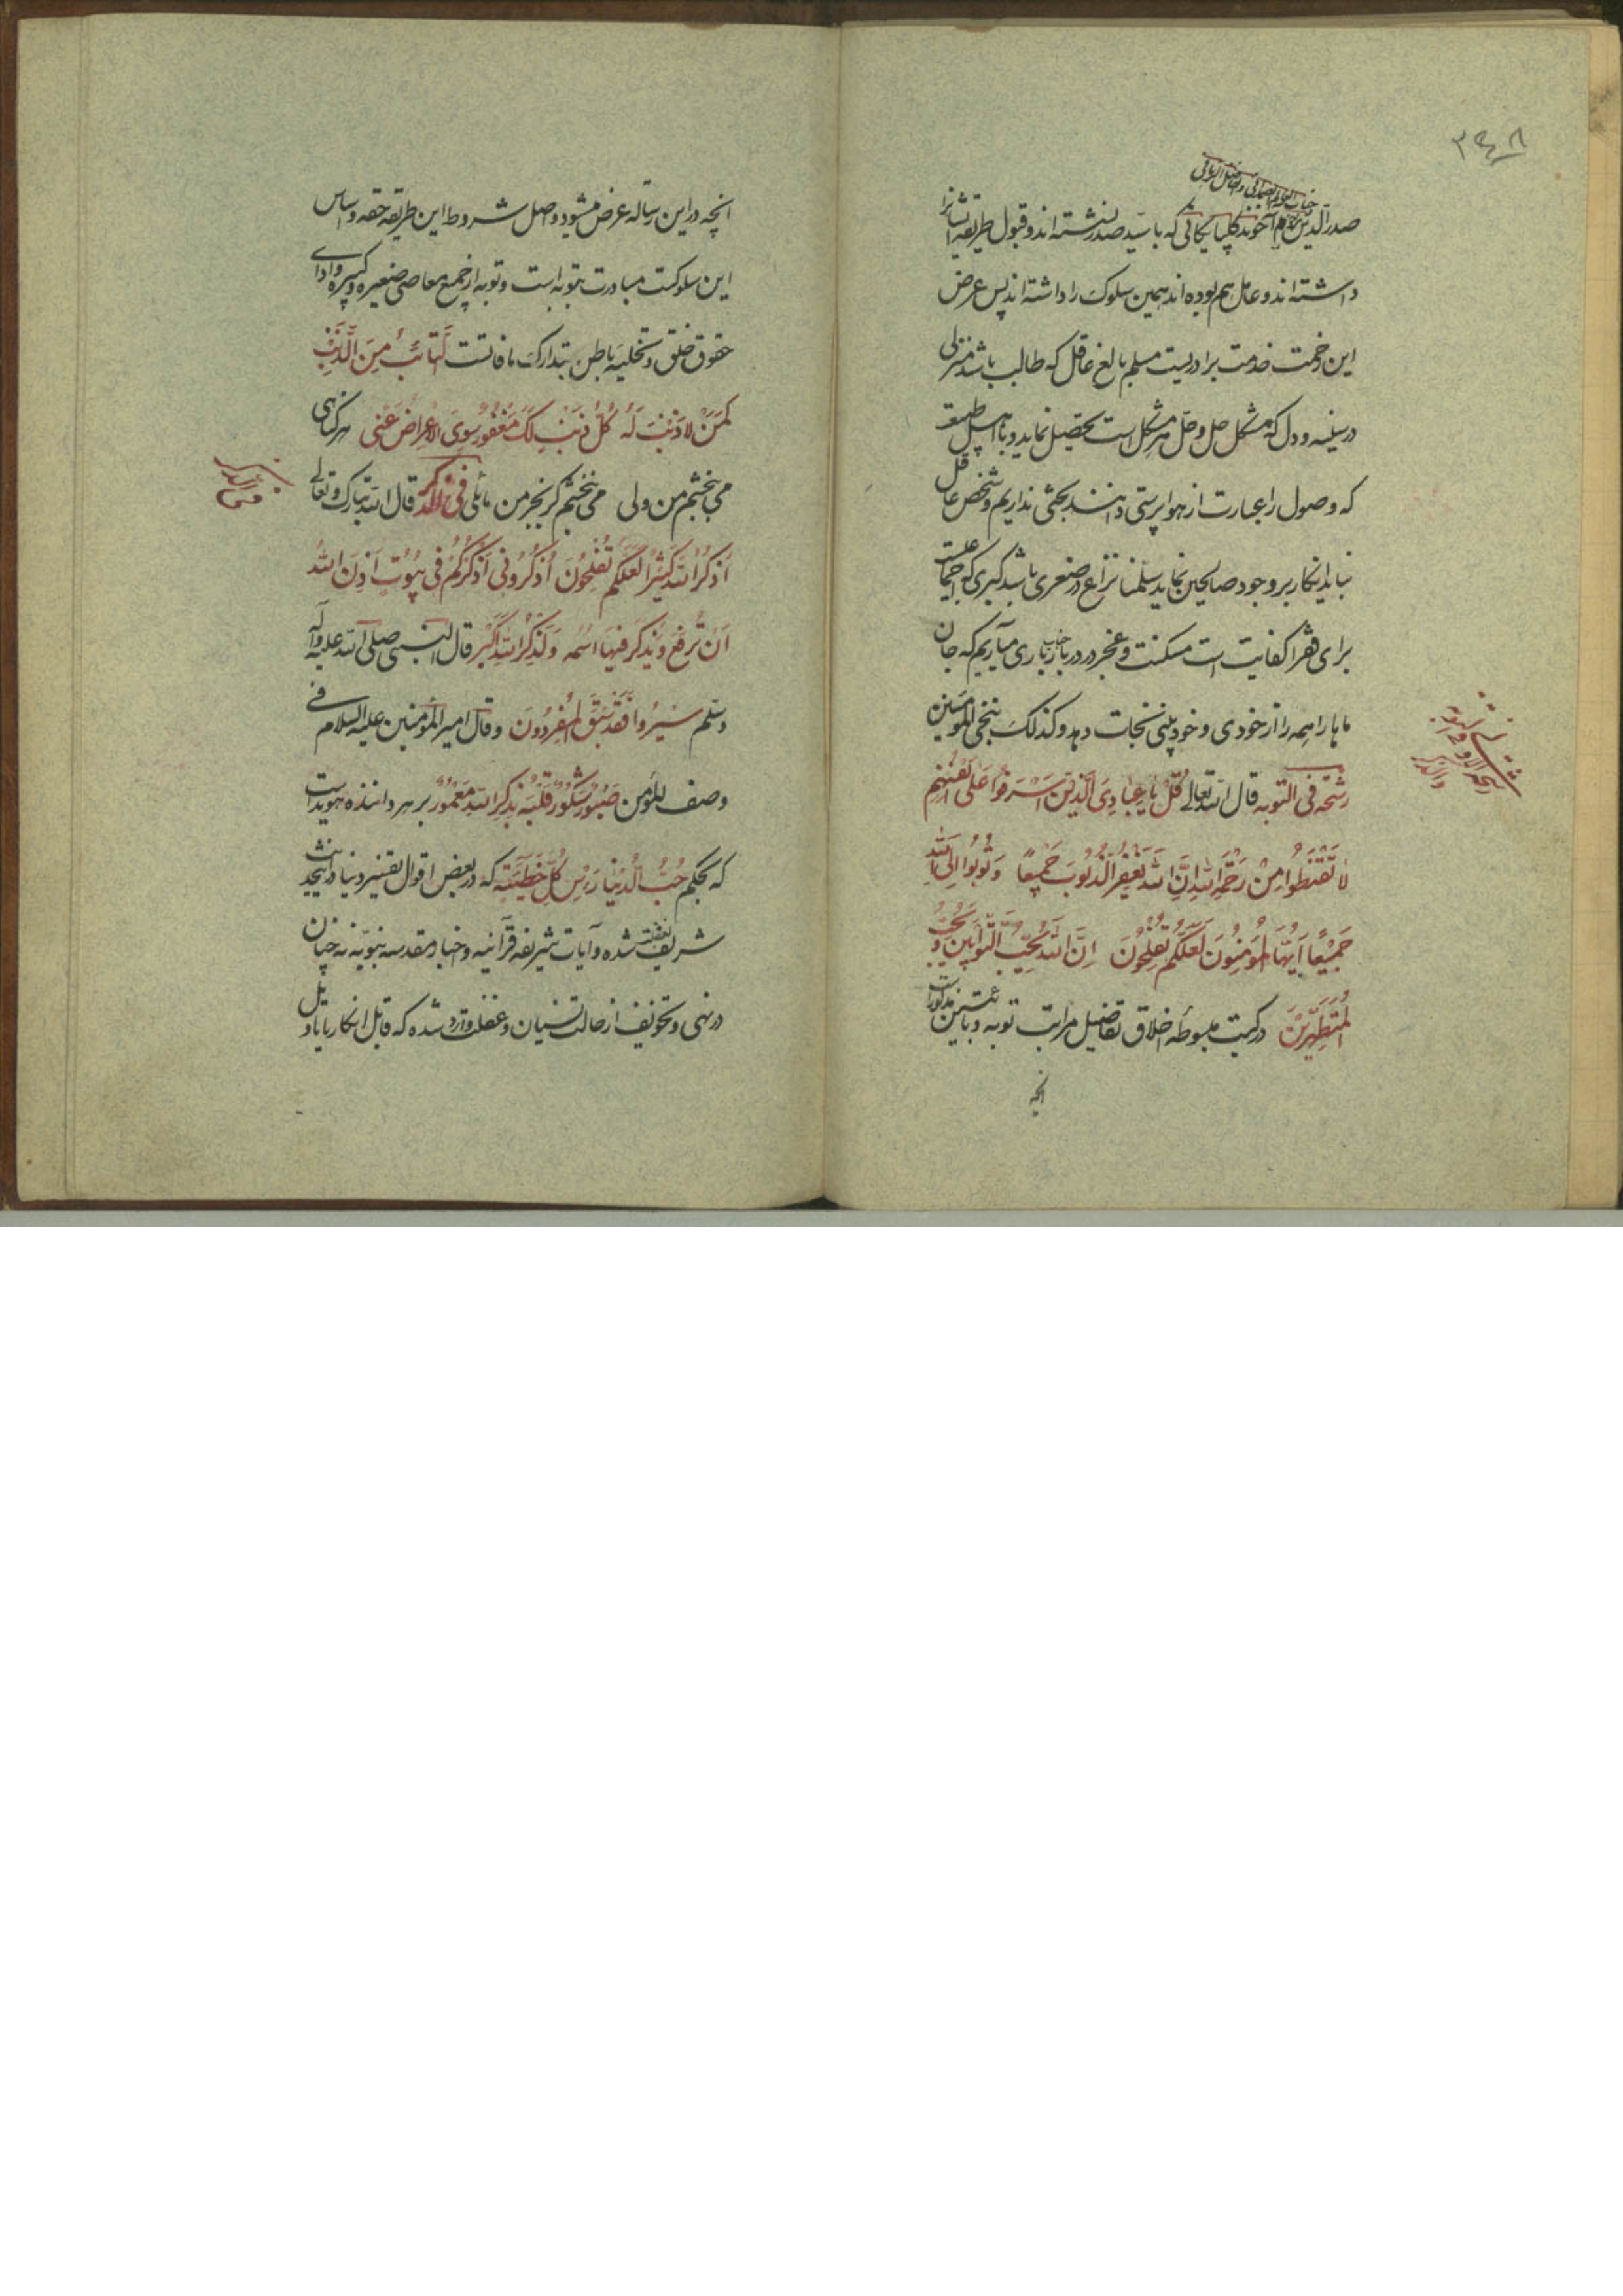 ۲۴۸
جناب العالم الصمدانی و الفاضل الربانی
صدرالدین آخوند گلپایگانی که با سید صدر نشسته‌اند و قبول طریقه ایشانرا
داشته‌اند و عامل هم بوده‌اند همین سلوک را داشته‌اند پس عرض
این خدمت برادریست مسلم بالغ عاقل که طالب باشد منزلی
در سینه و دل که مشکل حل و حل هر مشکل است تحصیل نماید و با اهل طبیعت
که وصول را عبارت از هواپرستی دانند بحثی نداریم و شخص عاقل
نباید انکار بر وجود صالحین نماید سلمنا نزاع در صغری باشد کبری که اجماعیست
برای فقرا کفایت است مسکنت و عجز در دربار جناب باری میآریم که جان
ماها را همه را از خودی و خودبینی نجات دهد و کذلک ننجی المؤمنین
رشحه فی التوبه قال الله تعالی قُلْ یا عِبادِیَ الَّذینَ اَسْرَفُوا عَلی اَنْفُسِهِم
لا تَقْنَطُوا مِنْ رَحْمَةِ اللهِ اِنَّ اللهَ یَغْفِرُ الذُّنُوبَ جَمیعًا وَتُوبُوا اِلَی اللهِ
جَمیْعًا اَیُّهَا الْمُؤمِنُونَ لَعَلَّکُم تُفْلِحُونَ اِنَّ اللهَ یُحِبُّ التَّوّابینَ وَ یُحِبُّ
الْمُتَطَهِّرینَ در کتب مبسوطه اخلاق تفاصیل مراتب توبه و تائبین مذکور است
انچه
انچه در این رساله عرض میشود و اصل شروط این طریقه حقه و اساس
این سلوکست مبادرت بتوبه است و توبه از جمیع معاصی صغیره و کبیره و ادای
حقوق خلق و تخلیه باطن بتدارک مافاتست اَلتّائِبُ مِنَ الذَّنْبِ
کَمَنْ لا ذَنْبَ لَهُ کُلُّ ذَنْبٍ لَکَ مَغْفُورٌ سِوَی الاِعْراضِ عَنّی هر گناهی
می‌بخشم من ولی می‌نبخشم گر بجز من مائلی فی الذکر قال الله تبارک و تعالی
اُذْکُرُوا اللهَ کَثیرًا لَعَلَّکُم تُفْلِحُونَ اُذْکُرُونی اَذْکُرْکُمْ فی بُیُوتٍ اَذِنَ اللهُ
اَنْ تُرْفَعَ وَ یُذْکَرَ فیهَا اسْمُهُ وَلَذِکْرُ اللهِ اَکْبَر قال النبی صلی الله علیه و آله
و سلم سیْرُوا فَقَدْ سَبَقَ الْمُفرِدُونَ و قال امیر المؤمنین علیه السلام فی
وصف المؤمن صَبُورٌ شَکُورٌ قَلْبُهُ بِذِکْرِ اللهِ مَعْمُورٌ بر هر داننده هویداست
که بحکم حُبُّ الدُّنْیا رَأسُ کُلِّ خَطیْئَةٍ که در بعض اقوال تفسیر دنیا در این حدیث
شریف بغفلت شده و آیات شریفه قرآنیه و اخبار مقدسه نبویه نه چنان
در نهی و تخویف از حالت نسیان و غفلت وارد شده که قابل انکار یا تاویل